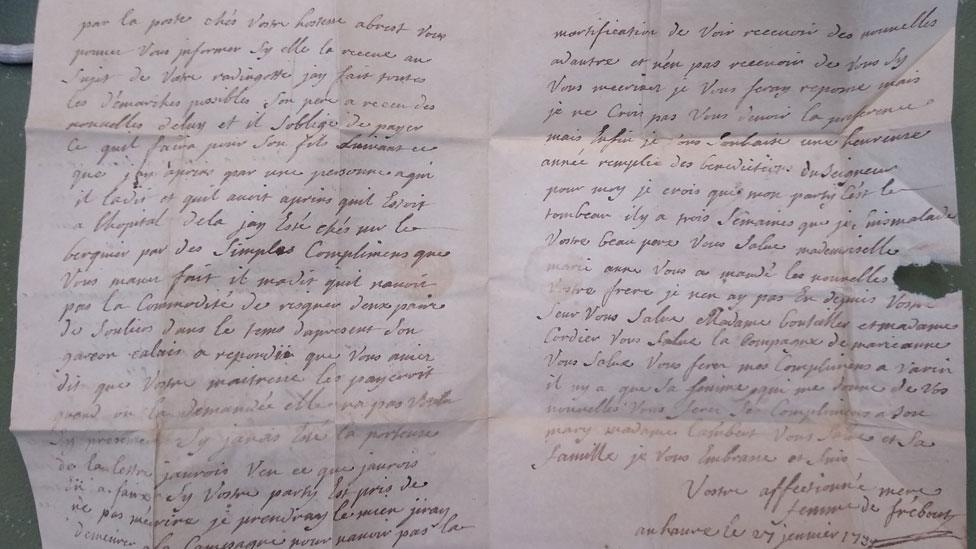 par la poste chés Vostre hostesse abrest Vous
pouvez Vous informer Sy elle la receue au
Sujet de Votre radingotte jay fait toutes
les démarches possibles Son pere a receu des
nouvelles deluy et il Soblige de payer
Ce quil faira pour Son fils Suivant ce
que jay apris par une personne aqui
il ladit et quil avoit apris quil Estoit
a lhopital dela jay Esté chés mr le
berquier par des Simples Complimens que
Vous mavez fait il madit quil navoit
pas la Commodité de risquer deux paire
de Souliers dans le tems dapresent Son
garçon calais a repondu que Vous aviez
dit que Votre maitresse les payeroit
quand on la demandée elle na pas Voulu
Sy javais Esté la porteuse
de la lettre jaurois Veu ce que jaurois
a faire Sy Vostre party Est pris de
ne pas mecrire je prendray le mien jiray
demeurer a la Campagne pour navoir pas la
mortification de Voir recevoir des nouvelles
adautre et nen pas recevoir de Vous Sy
Vous mecrivez je Vous feray reponse mais
je ne Crois pas Vous devoir la preference
mais Enfin je Vous Souhaite une heureuse
année remplie des benedictions du Seigneur
pour moy je crois que mon party Est le
tombeau il y a trois Semaines que je suis malade
Vostre beau pere Vous Salue mademoiselle
marianne Vous a mandé les nouvelles
Votre frere je nen ay pas Eu depuis Vostre
Seur Vous Salue Madame bouteiller et madame
Cordier Vous Salue la Compagne de marieanne
Vous Salue Vous ferez mes Complimens a Varin
il ny a que Sa femme qui me donne de Vos
nouvelles Vous ferez Ses Complimens a Son
mary madame Lambert Vous Salue et Sa
famille je Vous Embrasse et Suis
Vostre affectionné mere
femme de frébourg
au havre le 27 jenvier